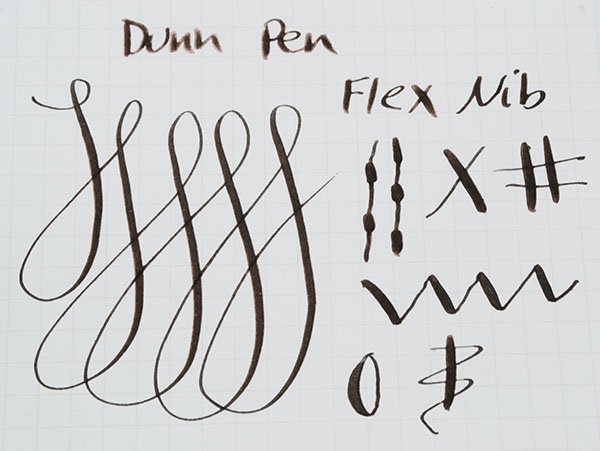 Dunn Pen
Flex Nib
X #